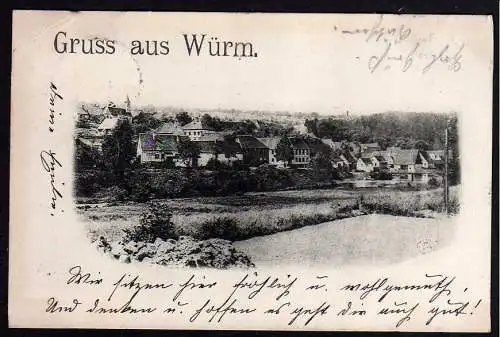 Gruss aus Würm.
Wir sitzen hier fröhlich u. wohlgemuth,
Und denken u. hoffen es geht dir auch gut!